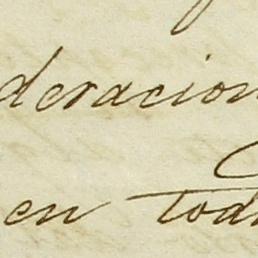 deracion
en tod